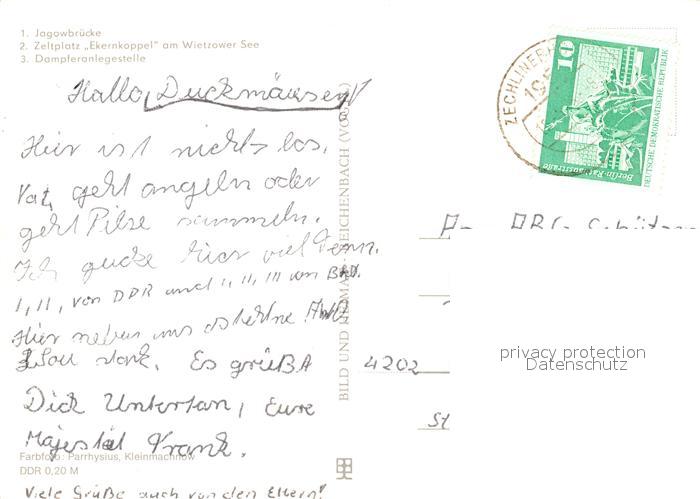 1. Jagowbrücke
2. Zeltplatz „Ekernkoppel" am Wietzower See
3. Dampferanlegestelle
Hallo, Duckmäuser!
Hier ist nichts los.
Vati geht angeln oder
geht Pilze sammeln.
Ich gucke hier viel Fern.
I, II, von DDR und I, II, III von BRD.
Hier neben uns
stark. Es grüßt
Dich Untertan, Eure
Majestät Frank.
Viele Grüße auch von den Eltern!
Farbfoto: Parrhysius, Kleinmachnow
DDR 0,20 M
BILD UND HEIMAT REICHENBACH (VOGTL)
ZECHLINERH
10
Berlin-Rathausstraße
DEUTSCHE DEMOKRATISCHE REPUBLIK
4202
St
privacy protection
Datenschutz